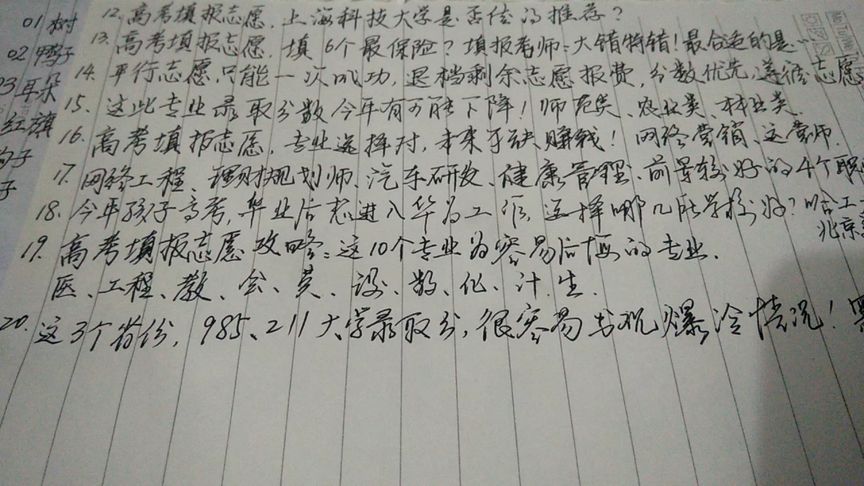 01 树
02 鸭子
03 耳朵
红旗
子
子
12. 高考填报志愿，上海科技大学是否值得推荐？
13. 高考填报志愿，填6个最保险？填报老师：大错特错！最合适的是
14. 平行志愿只能一次成功，退档剩余志愿报费，分数优先，遵循志愿
15. 这些专业录取分数今年有可能下降！师范类、农业类、林业类
16. 高考填报志愿，专业选择对，未来不缺赚钱！网络营销、运营师
17. 网络工程、理财规划师、汽车研发、健康管理、前景较好的4个职
18. 今年孩子高考，毕业后想进入华为工作，选择哪几所学校好？哈工
北京
19. 高考填报志愿攻略：这10个专业为容易后悔的专业.
医、工程、教、会、英、设、数、化、计、生.
20. 这3个省份，985、211大学录取分，很容易出现爆冷情况！